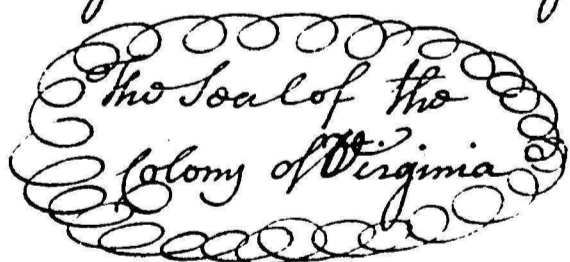 The Seal of the
Colony of Virginia